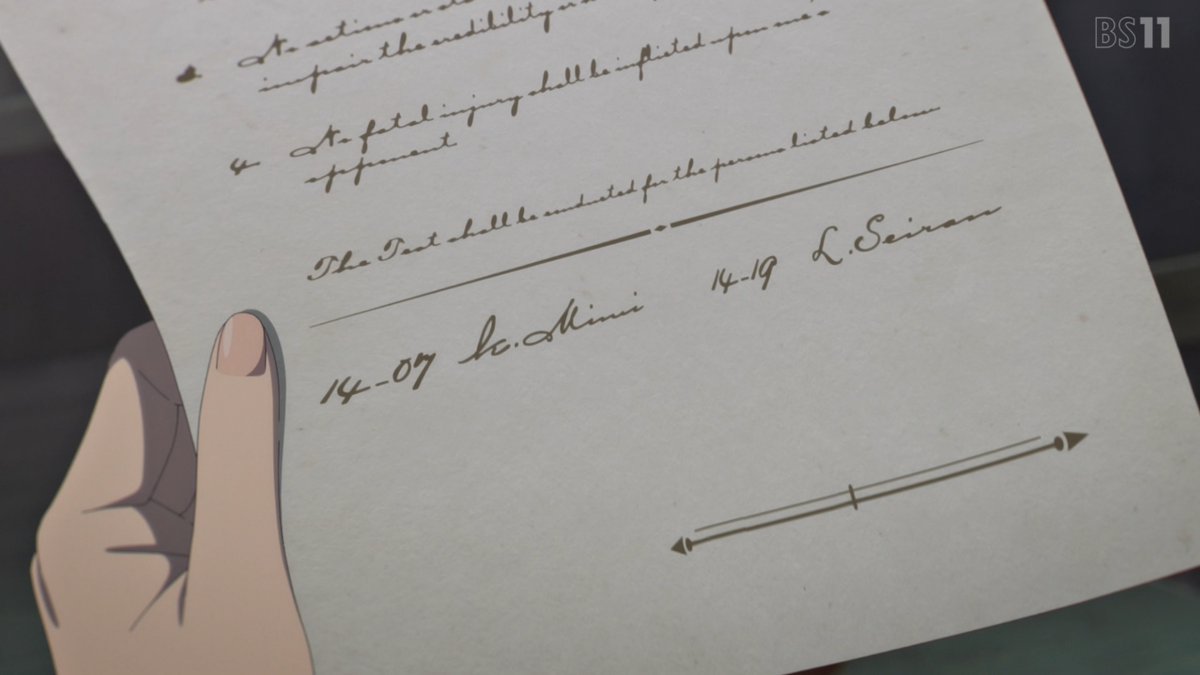 BS11
No actions or
impair the credibility or
4 No fatal injury shall be inflicted upon one's
opponent
The Test shall be conducted for the persons listed below
14-07 K.Mimi 14-19 L.Seiran